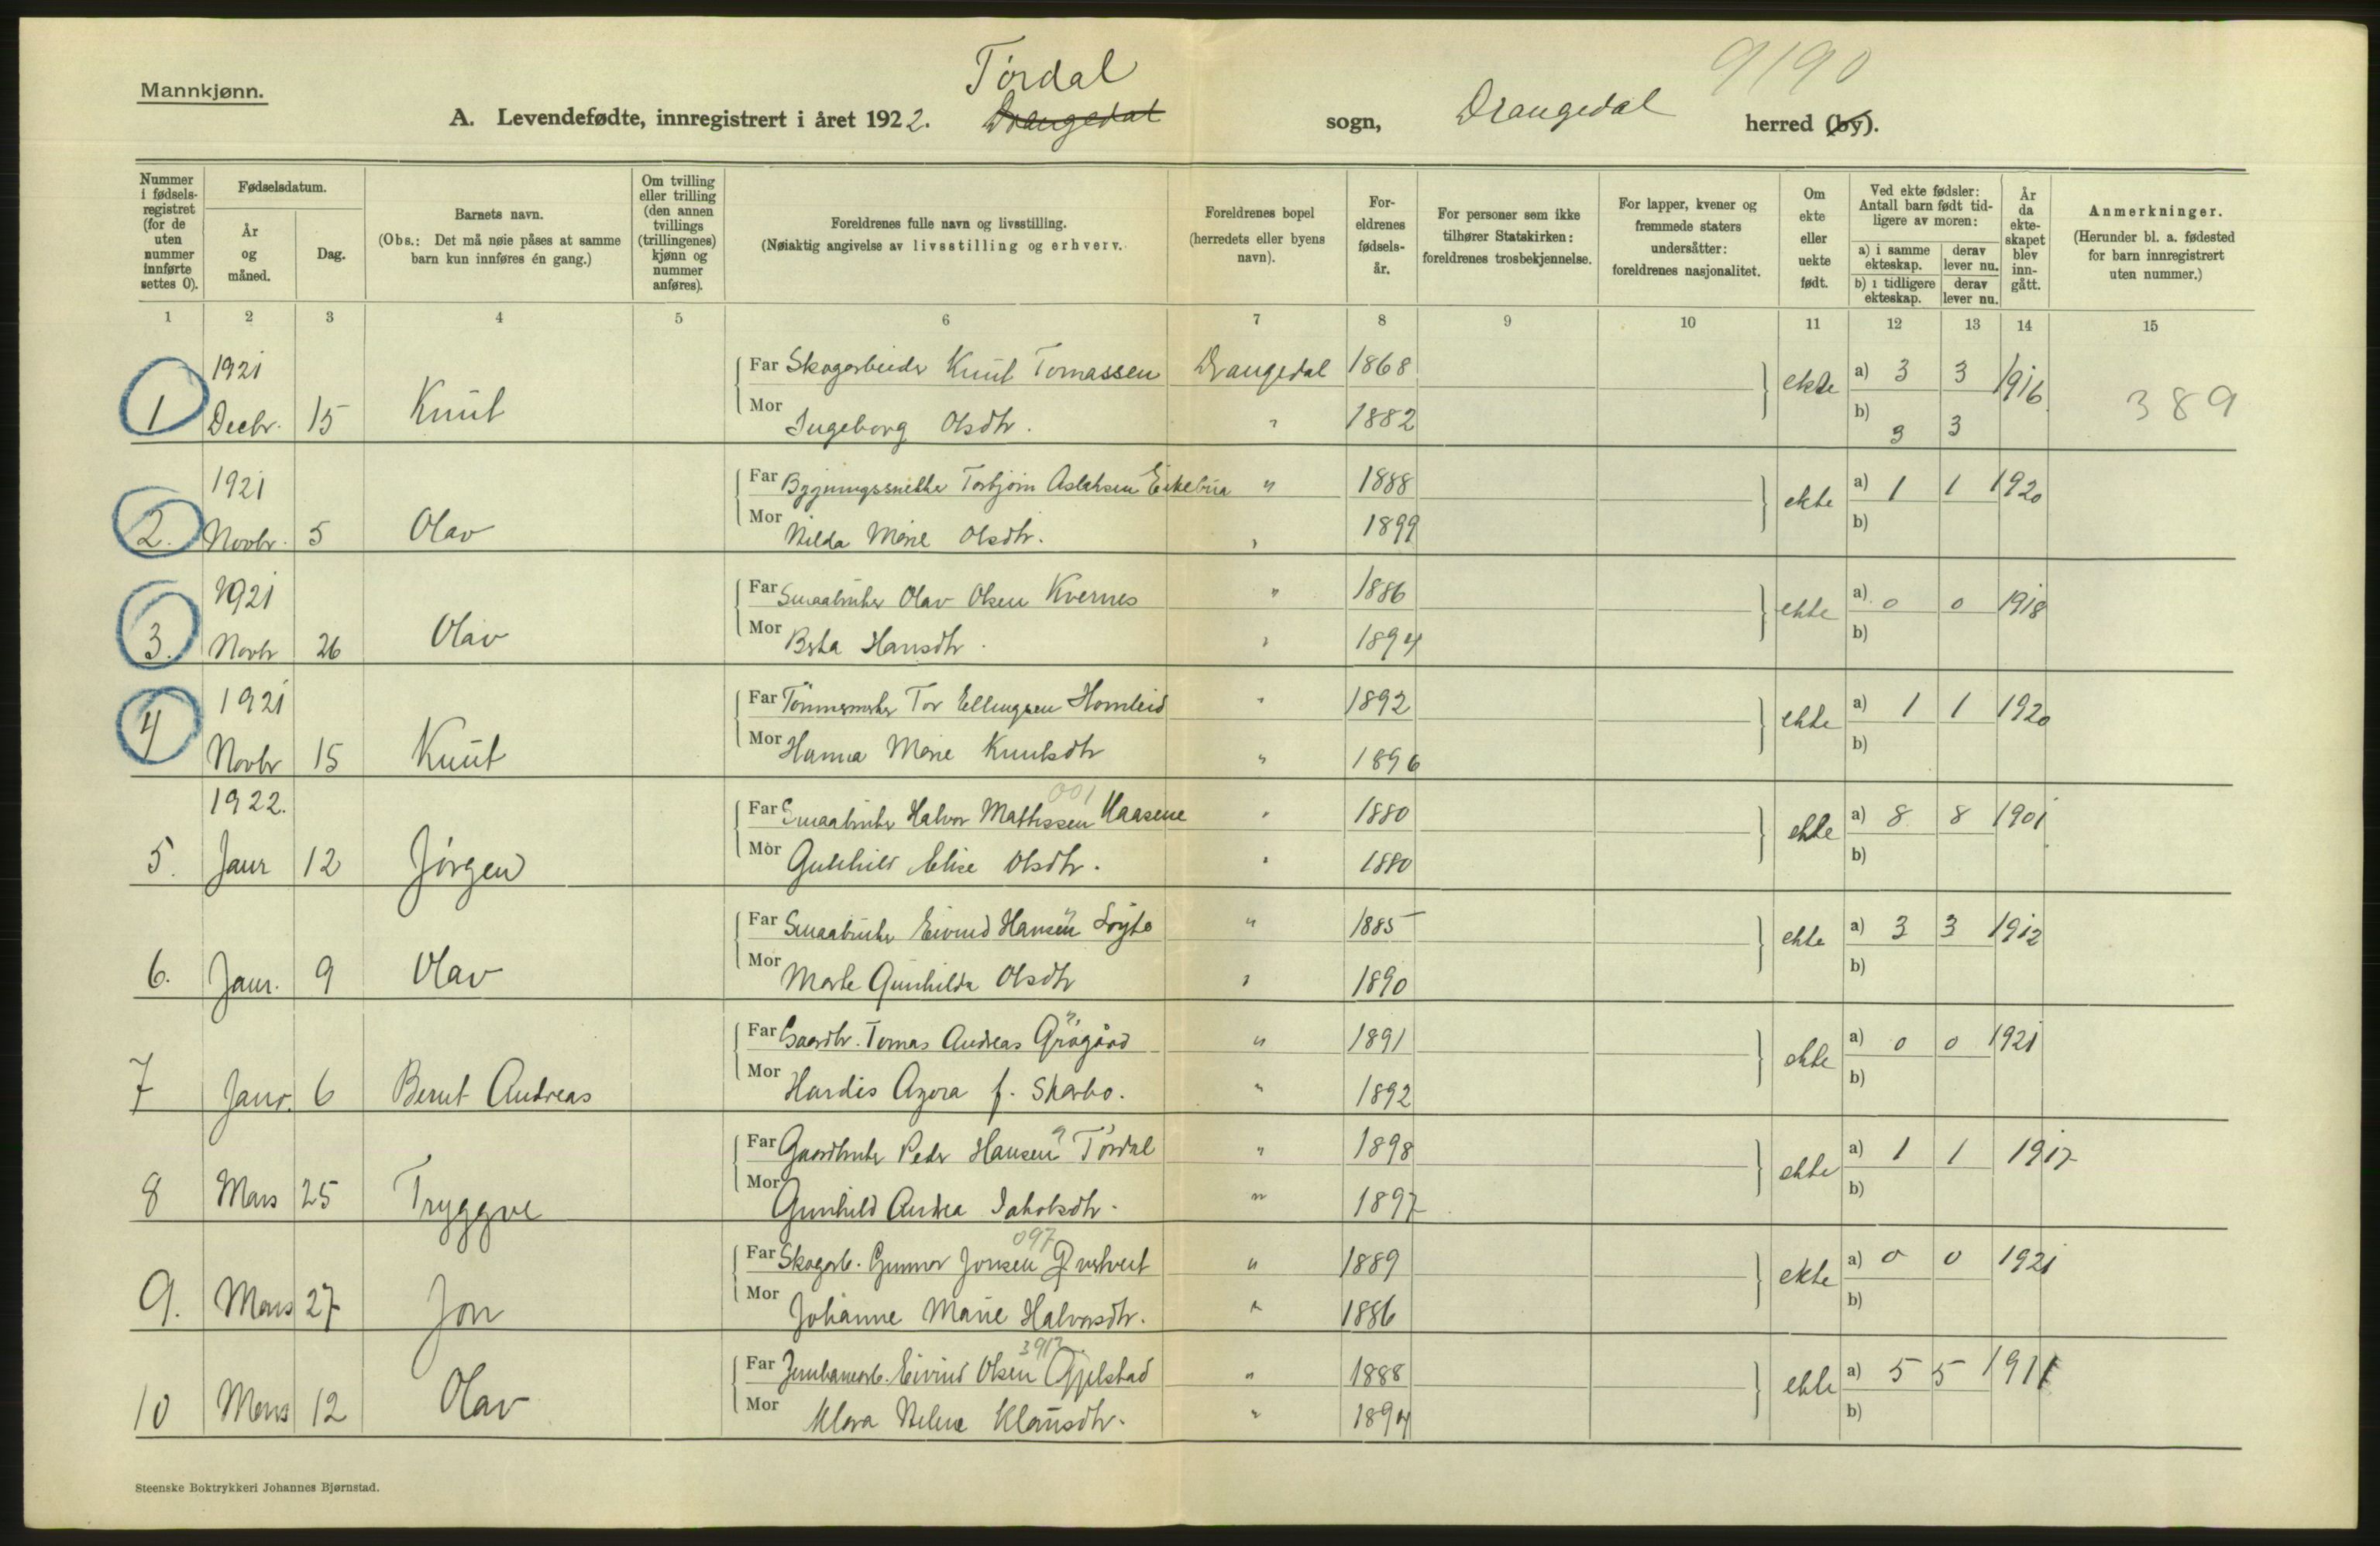 Mannkjønn.
Tørdal
9190
A. Levendefødte, innregistrert i året 1922. Drangedal sogn, Drangedal herred (by).
Nummer i fødsels-registret (for de uten nummer innførte settes 0).
Fødselsdatum.
År og måned.
Dag.
Barnets navn.
(Obs.: Det må nøie påses at samme barn kun innføres én gang.)
Om tvilling eller trilling (den annen tvillings (trillingenes) kjønn og nummer anføres).
Foreldrenes fulle navn og livsstilling.
(Nøiaktig angivelse av livsstilling og erhverv.
Foreldrenes bopel (herredets eller byens navn).
For-eldrenes fødsels-år.
For personer som ikke tilhører Statskirken: foreldrenes trosbekjennelse.
For lapper, kvener og fremmede staters undersåtter: foreldrenes nasjonalitet.
Om ekte eller uekte født.
Ved ekte fødsler: Antall barn født tid-ligere av moren:
a) i samme ekteskap.
derav lever nu.
b) i tidligere ekteskap.
derav lever nu.
År da ekte-skapet blev inn-gått.
Anmerkninger.
(Herunder bl. a. fødested for barn innregistrert uten nummer.)
1 2 3 4 5 6 7 8 9 10 11 12 13 14 15
1921
Far Skogarbeider Knut Tomassen Drangedal 1868 ekte a) 3 3 1916
1 Decbr. 15 Knut
Mor Ingeborg Olsdtr. " 1882 b) 3 3
389
1921
Far Torbjørn Aslaksen Eikebua " 1888 ekte a) 1 1 1920
2. Novbr. 5 Olav
Mor Hilda Marie Olsdtr. " 1899 b)
1921
Far Smaabruker Olav Olsen Kvernes " 1886 ekte a) 0 0 1918
3. Novbr 26 Olav
Mor Berta Hansdtr. " 1894 b)
1921
Far Tømmermerker Tor Ellingsen Homleid " 1892 ekte a) 1 1 1920
4 Novbr 15 Knut
Mor Hanna Marie Knutsdtr " 1896 b)
1922.
001
Far Smaabruker Halvor Mathissen Haasene " 1880 ekte a) 8 8 1901
5. Janr 12 Jørgen
Mor Gunhild Elise Olsdtr. " 1880 b)
Far Smaabruker Eivind Hansen " 1885 ekte a) 3 3 1912
6. Janr. 9 Olav
Mor Marte Gunhilda Olsdtr " 1890 b)
Far Gaardbr. Tomas Andreas " 1891 ekte a) 0 0 1921
7 Janr. 6 Bernt Andreas
Mor Hardis Agora f. Skarbo. " 1892 b)
Far Gaardbruker Peder Hansen Tørdal " 1898 ekte a) 1 1 1917
8 Mars 25 Tryggve
Mor Gunhild Andrea Jakobsdtr. " 1897 b)
097
Far Skogarb. Gunnar Jonsen " 1889 ekte a) 0 0 1921
9. Mars 27 Jon
Mor Johanne Marie Halvorsdtr. " 1886 b)
Far Jernbanearb. Eivind Olsen Gjelstad " 1888 ekte a) 5 5 1911
10 Mars 12 Olav
Mor Klara Helene Klausdtr. " 1894 b)
Steenske Boktrykkeri Johannes Bjørnstad.